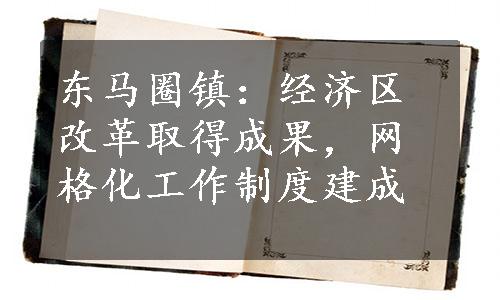 东马圈镇：经济区
改革取得成果，网
格化工作制度建成